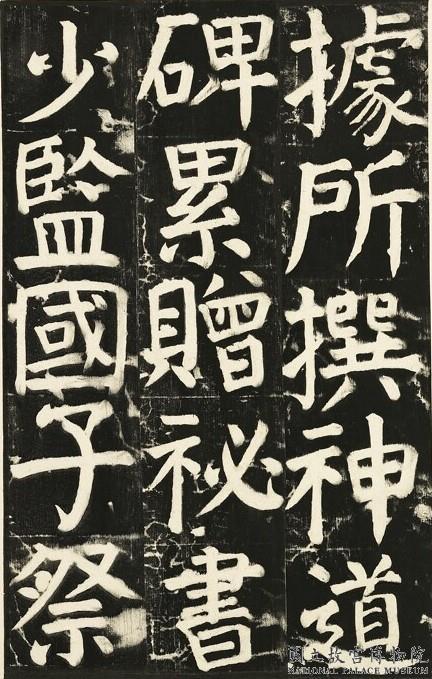 據所撰神道
碑累贈祕書
少監國子祭
國立故宮博物院
NATIONAL PALACE MUSEUM